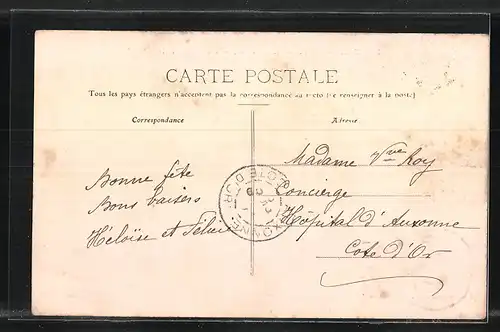 CARTE POSTALE
Tous les pays étrangers n'acceptent pas la correspondance au recto (se renseigner à la poste)
Correspondance
Adresse
Madame Vve Roy
Concierge
Hôpital d'Auxonne
Côte d'Or
Bonne fête
Bons baisers
Héloïse et
AUXONNE
CÔTE D'OR